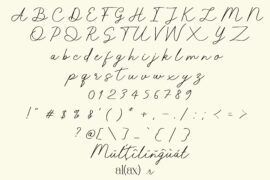 A B C D E F G H I J K L M N
O P Q R S T U V W X Y Z
a b c d e f g h i j k l m n o
p q r s t u v w x y z
0 1 2 3 4 5 6 7 8 9
! " # $ % & ' ( ) * + , - . / : ; < = >
? @ [ \ ] _ ` { / }
Multilingual
al(ax)